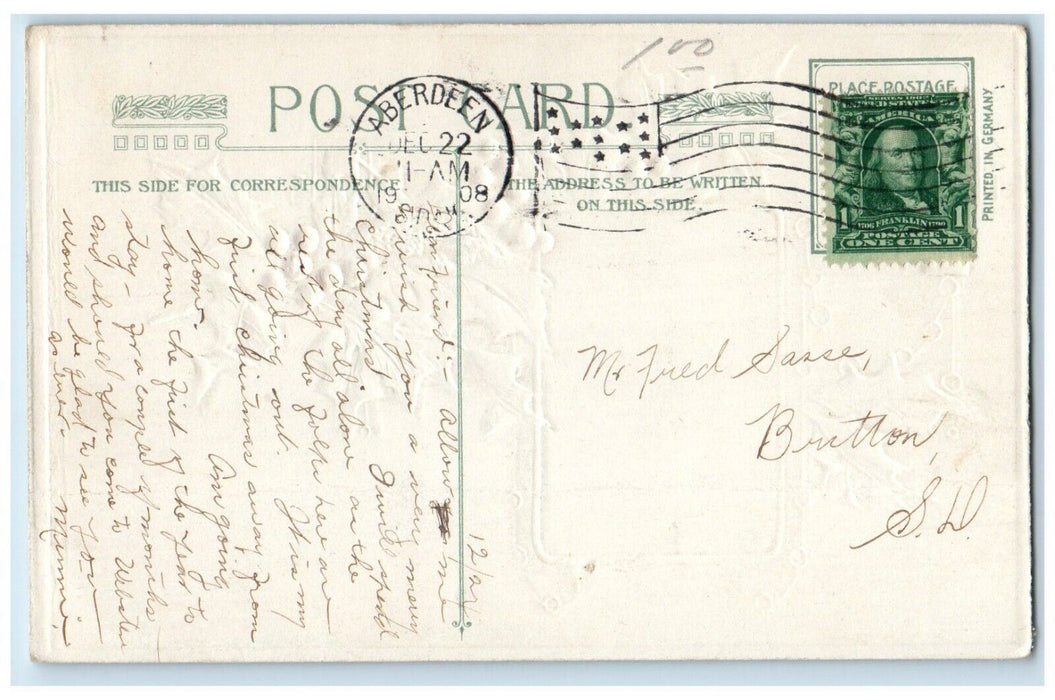 1 00
POST CARD
PLACE POSTAGE
PRINTED IN GERMANY
ABERDEEN
DEC 22
11-AM
1908
S. DAK.
SERIES 1902
UNITED STATES OF AMERICA
1 1706 FRANKLIN 1790 1
POSTAGE
ONE CENT
THIS SIDE FOR CORRESPONDENCE.
THE ADDRESS TO BE WRITTEN
ON THIS SIDE.
12/21
Friend:- Allow me
wish you a very merry
Christmas. I will spend
the day all alone as the
rest of the folks here are
all going out. This is my
first christmas away from
home. Am going
home the first of the year to
stay - for a couple of months
and should you come to Webster
would be glad to see you
as ever. Minnie.
Mr Fred Sasse,
Britton,
S.D.